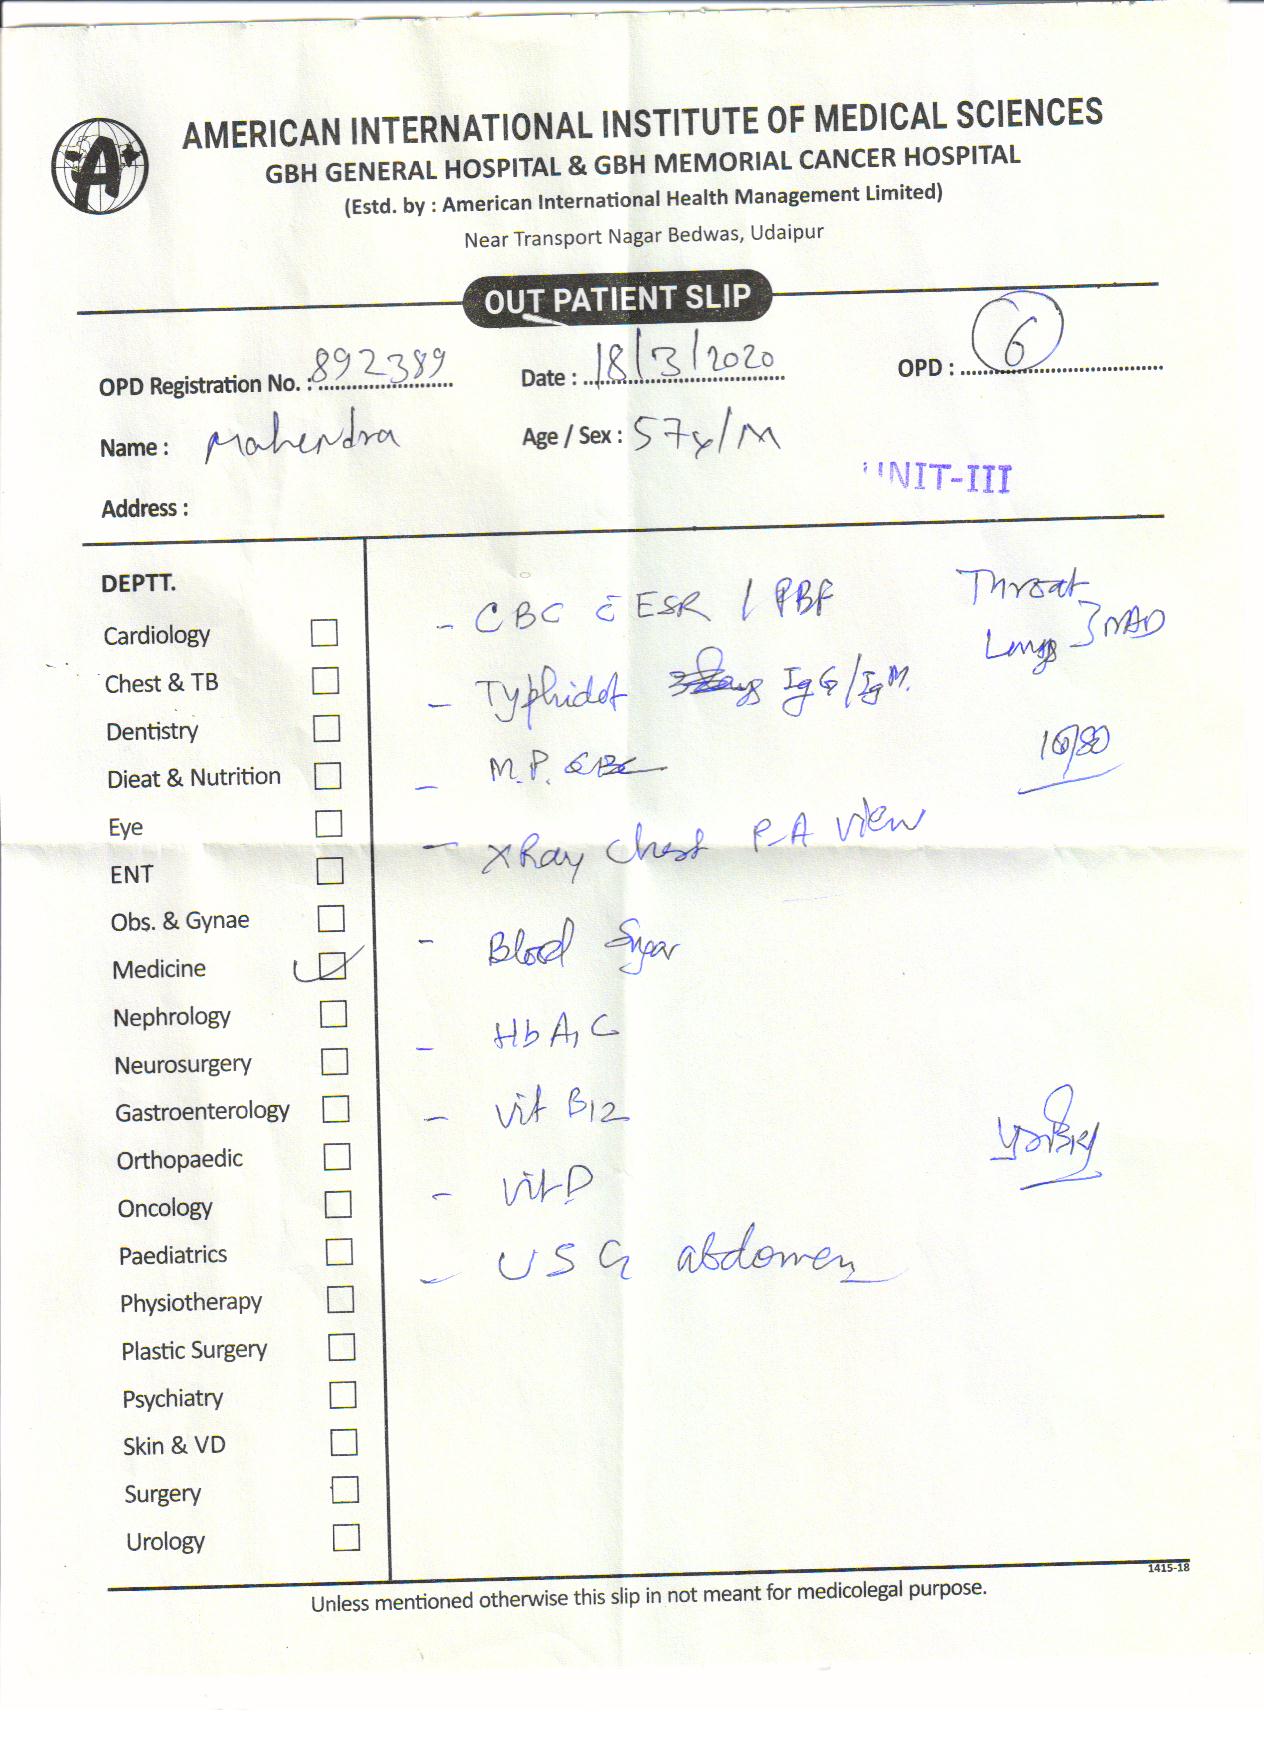 AMERICAN INTERNATIONAL INSTITUTE OF MEDICAL SCIENCES
GBH GENERAL HOSPITAL & GBH MEMORIAL CANCER HOSPITAL
(Estd. by : American International Health Management Limited)
Near Transport Nagar Bedwas, Udaipur
OUT PATIENT SLIP
OPD Registration No. : 892389 Date : 18/3/2020 OPD : 6
Name : Mahendra Age / Sex : 57y/M
UNIT-III
Address :
DEPTT.
Cardiology
Chest & TB
Dentistry
Dieat & Nutrition
Eye
ENT
Obs. & Gynae
Medicine
Nephrology
Neurosurgery
Gastroenterology
Orthopaedic
Oncology
Paediatrics
Physiotherapy
Plastic Surgery
Psychiatry
Skin & VD
Surgery
Urology
- CBC c̄ ESR / PBF
- Typhidot IgG/IgM.
- M.P.
- X Ray Chest P-A view
- Blood Sugar
- HbA1C
- Vit B12
- Vit D
- USG abdomen
Throat
Lungs } NAD
1415-18
Unless mentioned otherwise this slip in not meant for medicolegal purpose.